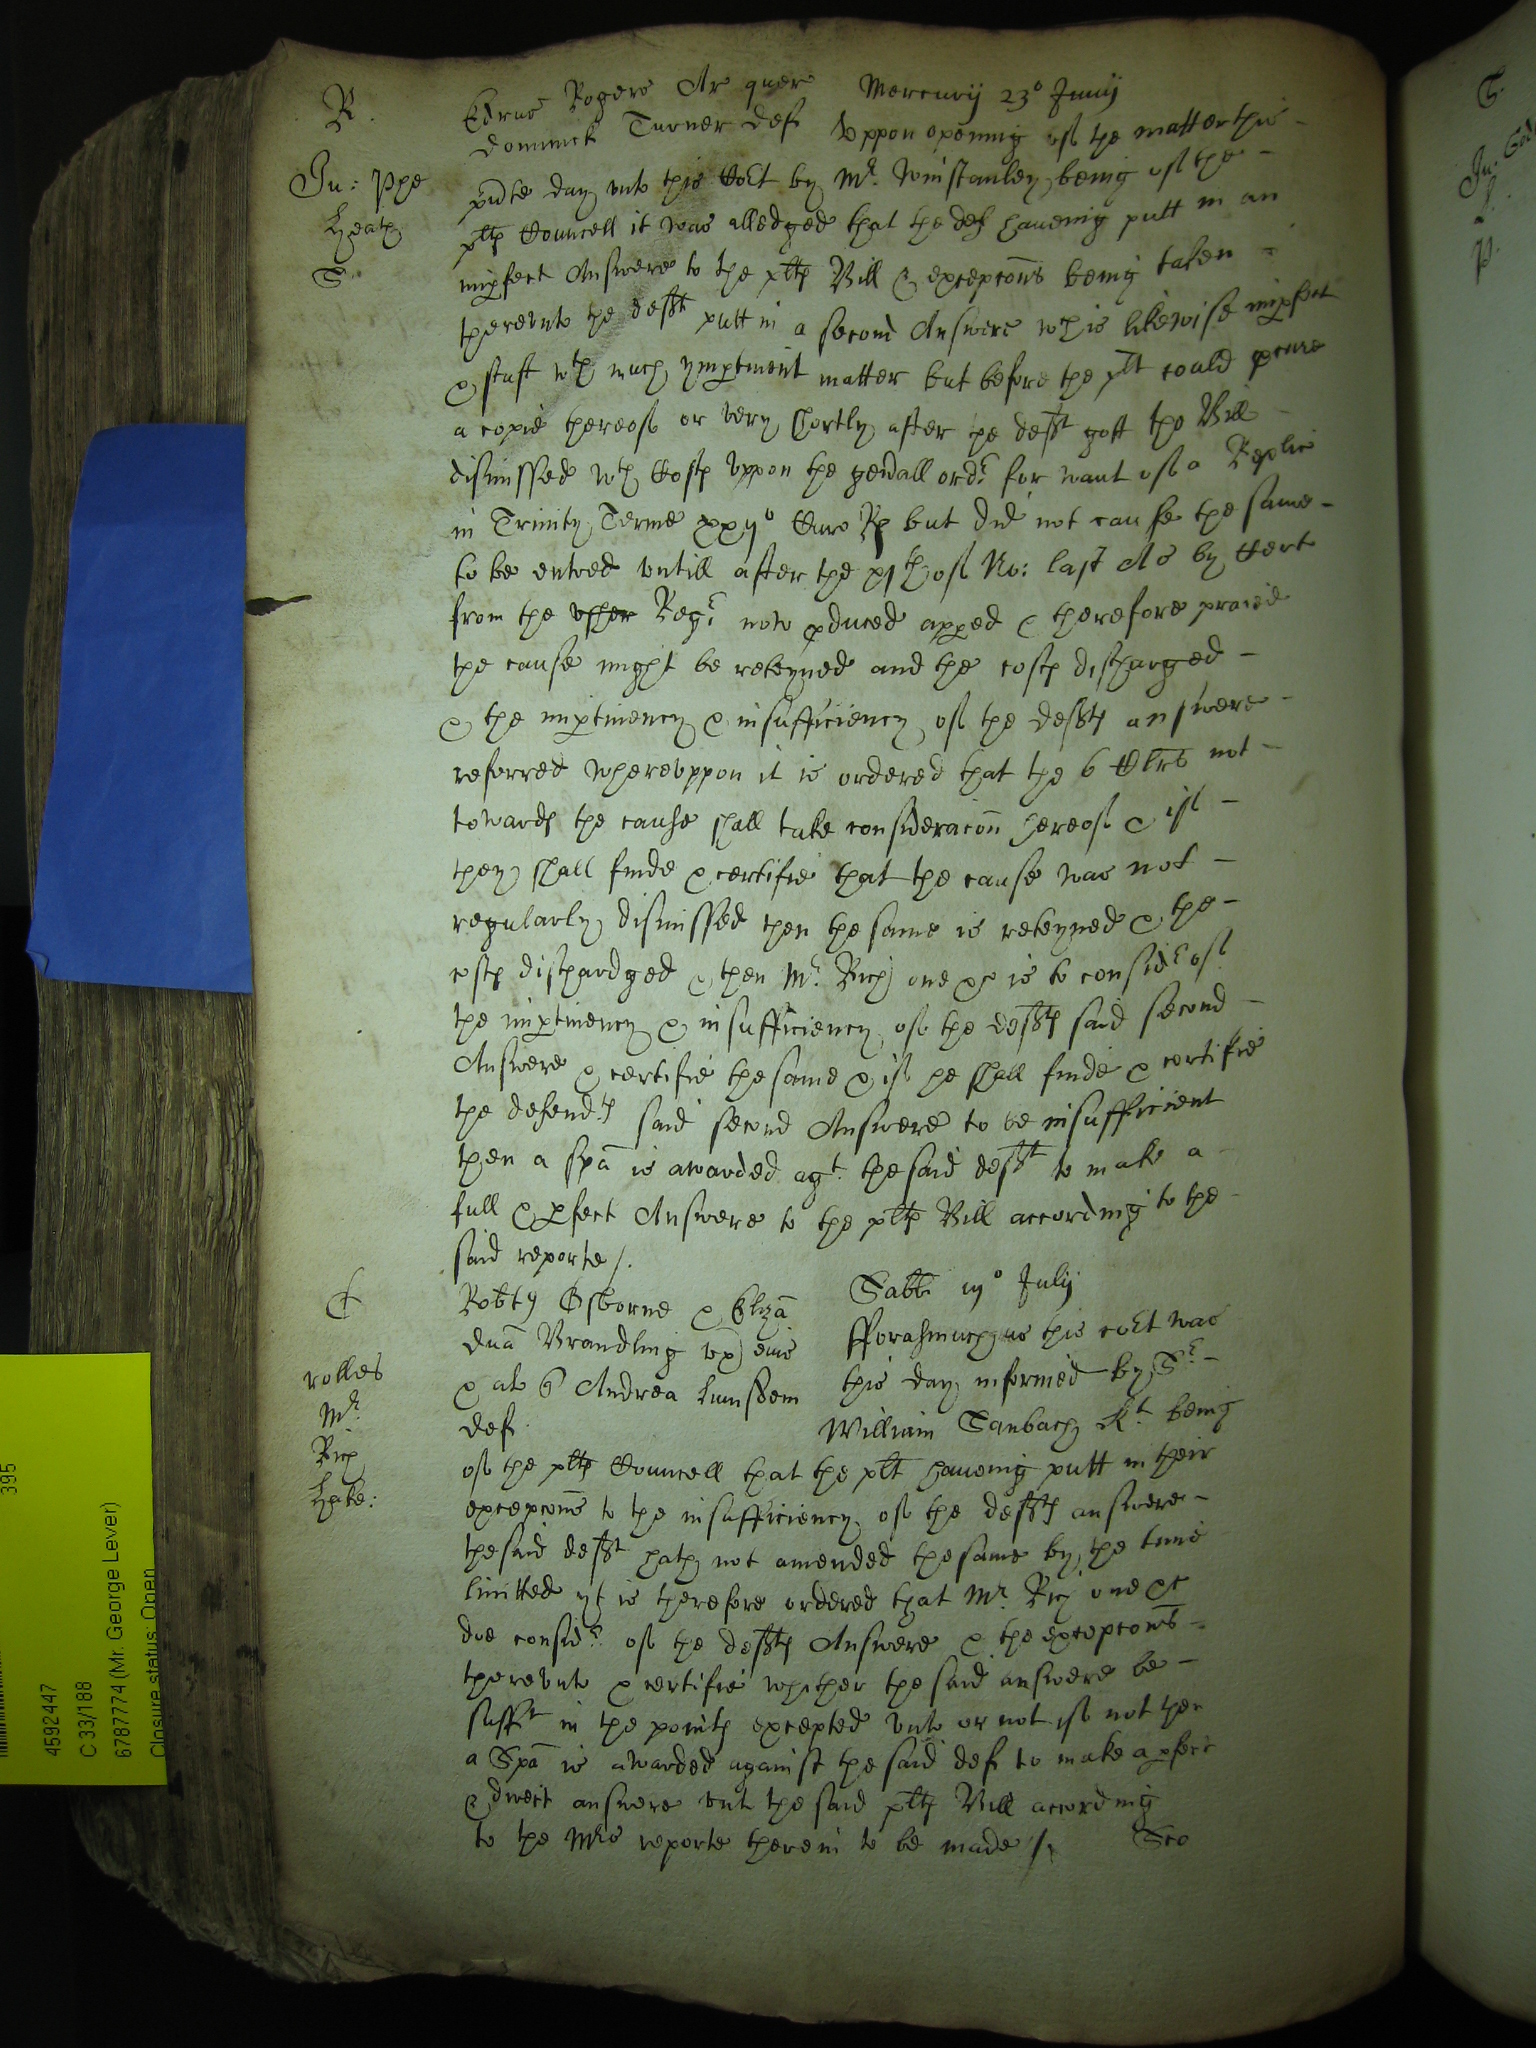 R.
Edrus Rogers Ar quer Mercurij 23º Junij
Dominick Turner def Vppon opening of the matter this
In: Ppe
Heath
S
pñte day vnto this Coĩt by Mr. Winstanley being of the
pltes Councell it was alledged that the def haueing putt in an
imp̱fect Answere to the pltes Bill & excepcõns being taken
therevnto the defft putt in a second Answere wch is likewise imp̱fect
& stuft wth much ymp̱tinent matter but before the plt could p̱cure
a copie thereof or very shortly after he defft gott the Bill
dismissed wth Costes vppon the gen̄all ordr for want of a Replic
in Trinity Terme xxijº Caro Rs but did not cause the same
to be entred vntill after the xjth of No: last As by Cert
from the vsher Regr now p̱duced app̱ed & therefore praied
the cause might be reteyned and the costes discharged
& the imp̱tinency & insufficiency of the deffts answere
referred wherevppon it is ordered that the 6 Clrs not
towards the cause shall take consideracõn hereof & if
they shall finde & certifie that the cause was not
regularly dismissed then the same is reteyned & the
costes dischardged & then Mr. Rich one &c is to considr of
the imp̱tinency & insufficiency of the deffts said second
Answere & certifie the same & if he shall finde & certifie
the defendts said second Answere to be insufficient
then a spã is awarded agt. the said defft to make a
full & p̱fect Answere to the pltes Bill according to the
said reporte /.
C
rolles
Mr.
Rich
Hake:
Robtus Osborne & Eliza Sabti 3º Julij
dña Brandling vx eius fforasmuch as this coĩt was
& als q Andrea Lumsdem this day informed by Sr
def William Sanbach Kt. being
of the pltes Councell that the plt haueing putt in their
excepcons to the insufficiency of the deffts answere
the said defft hath not amended the same by the time
limitted yt is therefore ordered that Mr. Rich one &c
doe considr. of the deffts Answere & the excepcons
therevnto & certifie whether the said answere be
sufft in the pointes excepted vnto or not if not then
a Spã is awarded against the said def to make a p̱fect
& direct answere vnt the said pltes Bill according
to the Mrs reporte therein to be made /. Sco
395
4592447
C 33/188
6787774 (Mr. George Lever)
Closure status: Open